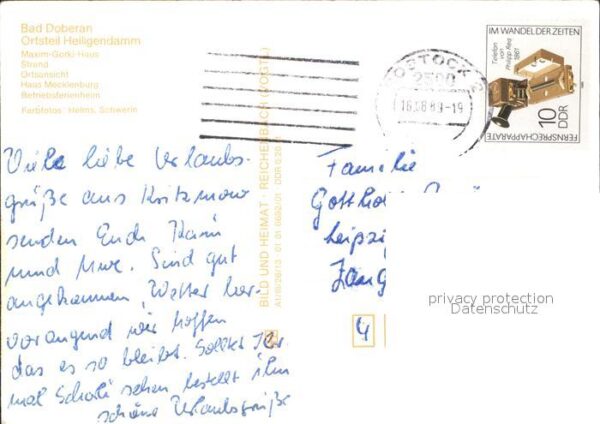 Bad Doberan
Ortsteil Heiligendamm
Maxim-Gorki-Haus
Strand
Ortsansicht
Haus Mecklenburg
Betriebsferienheim
Farbfotos: Helms, Schwerin
BILD UND HEIMAT · REICHENBACH (VOGTL)
ROSTOCK 2
2500
16.08.89-19
IM WANDEL DER ZEITEN
Telefon
von
Philipp Reis
1861
10
DDR
FERNSPRECHAPPARATE
Viele liebe Urlaubs-
grüße aus
senden Euch Karin
und Uwe. Sind gut
angekommen, Wetter her-
vorangend wir hoffen
das es so bleibt. Solltet Ihr
mal sehen bestellt ihm
schöne Urlaubsgrüße
Familie
Leipzig
privacy protection
Datenschutz